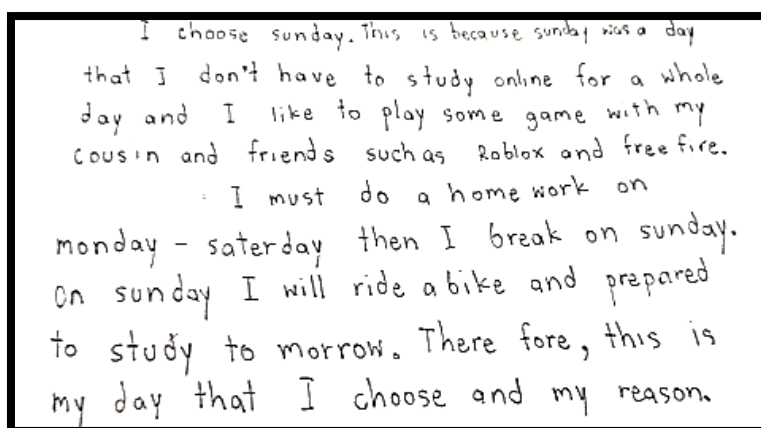 I choose sunday. This is because sunday was a day
that I don't have to study online for a whole
day and I like to play some game with my
cousin and friends such as Roblox and free fire.
I must do a home work on
monday - saterday then I break on sunday.
On sunday I will ride a bike and prepared
to study to morrow. There fore, this is
my day that I choose and my reason.